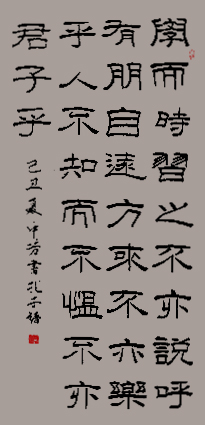 學而時習之不亦說呼
有朋自遠方來不亦樂
乎人不知而不慍不亦
君子乎
己丑夏中芳書孔子語